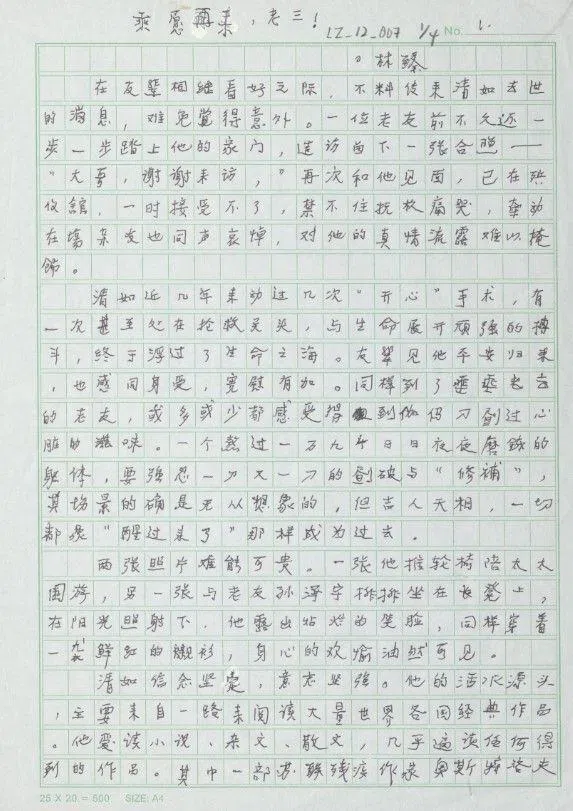 乘愿再来，老三！
LZ_12_007 1/4 No. 1.
。林臻
在友辈相继看好之际，不料传来清如去世
的消息，难免觉得意外。一位老友前不久还一
步一步踏上他的家门，造访留下一张合照——
“大哥，谢谢来访，”再次和他见面，已在殡
仪馆，一时接受不了，禁不住抚棺痛哭，牵动
在场亲友也同声哀悼，对他的真情流露难以掩
饰。
清如近几年来动过几次“开心”手术，有
一次甚至处在抢救关头，与生命展开顽强的搏
斗，终于浮过了生命之海。友辈见他平安归来
，也感同身受，宽慰有加。同样到了垂垂老去
的老友，或多或少都感受得到他借刀割过心
脏的滋味。一个熬过一万九千日日夜夜磨蚀的
躯体，要强忍一刀又一刀的割破与“修补”，
其场景的确是无从想象的，但吉人天相，一切
都象“醒过来了”那样成为过去。
两张照片难能可贵。一张他推轮椅陪太太
闲游，另一张与老友孙泽宇排排坐在长凳上，
在阳光照射下，他露出灿烂的笑脸，同样穿着
一式鲜红的衬衫，身心的欢愉油然可见。
清如信念坚定，意志坚强。他的活水源头
，主要来自一路来阅读大量世界各国经典作品
。他爱读小说、杂文、散文，几乎遍读任何得
到的作品。其中一部苏联残废作家奥斯特洛夫
25 X 20 = 500 SIZE: A4